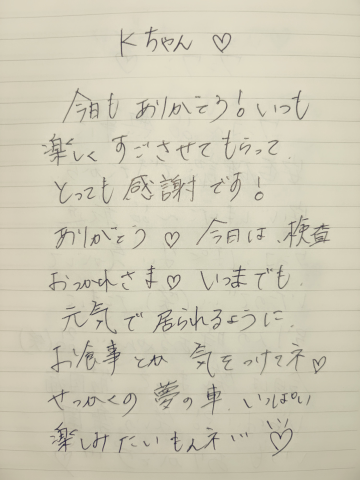 Kちゃん ♡
今日も ありがとう! いつも
楽しく すごさせてもらって、
とっても 感謝です!
ありがとう ♡ 今日は、検査
おつかれさま♡ いつまでも、
元気で 居られるように、
お食事とか 気をつけてネ♡
せっかくの 夢の車、いっぱい
楽しみたいもんネ… ♡